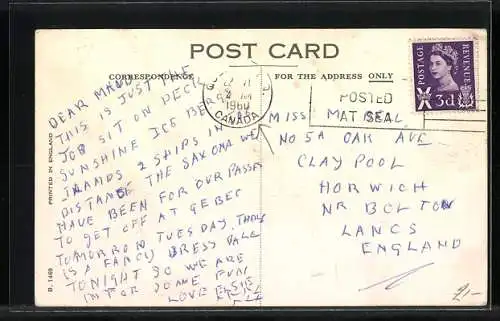 POST CARD
CORRESPONDENCE
FOR THE ADDRESS ONLY
DEAR MAUD JUST THE
THIS IS JUST THE
JOB SIT ON DECK
SUNSHINE ICE BER
ISLANDS 2 SHIPS IN
DISTANCE THE SAXONA WE
HAVE BEEN FOR OUR PASSES
TO GET OFF AT QEBEC
TOMORROW TUESDAY. THERE
IS A FANCY DRESS BALL
TONIGHT SO WE ARE
IN FOR SOME FUN
LOVE ELSIE
1960
CANADA
POSTED
AT SEA
POSTAGE
REVENUE
3d
MISS M BEAL
NO 5A OAK AVE
CLAYPOOL
HORWICH
NR BOLTON
LANCS
ENGLAND
PRINTED IN ENGLAND
B. 1469
2/-